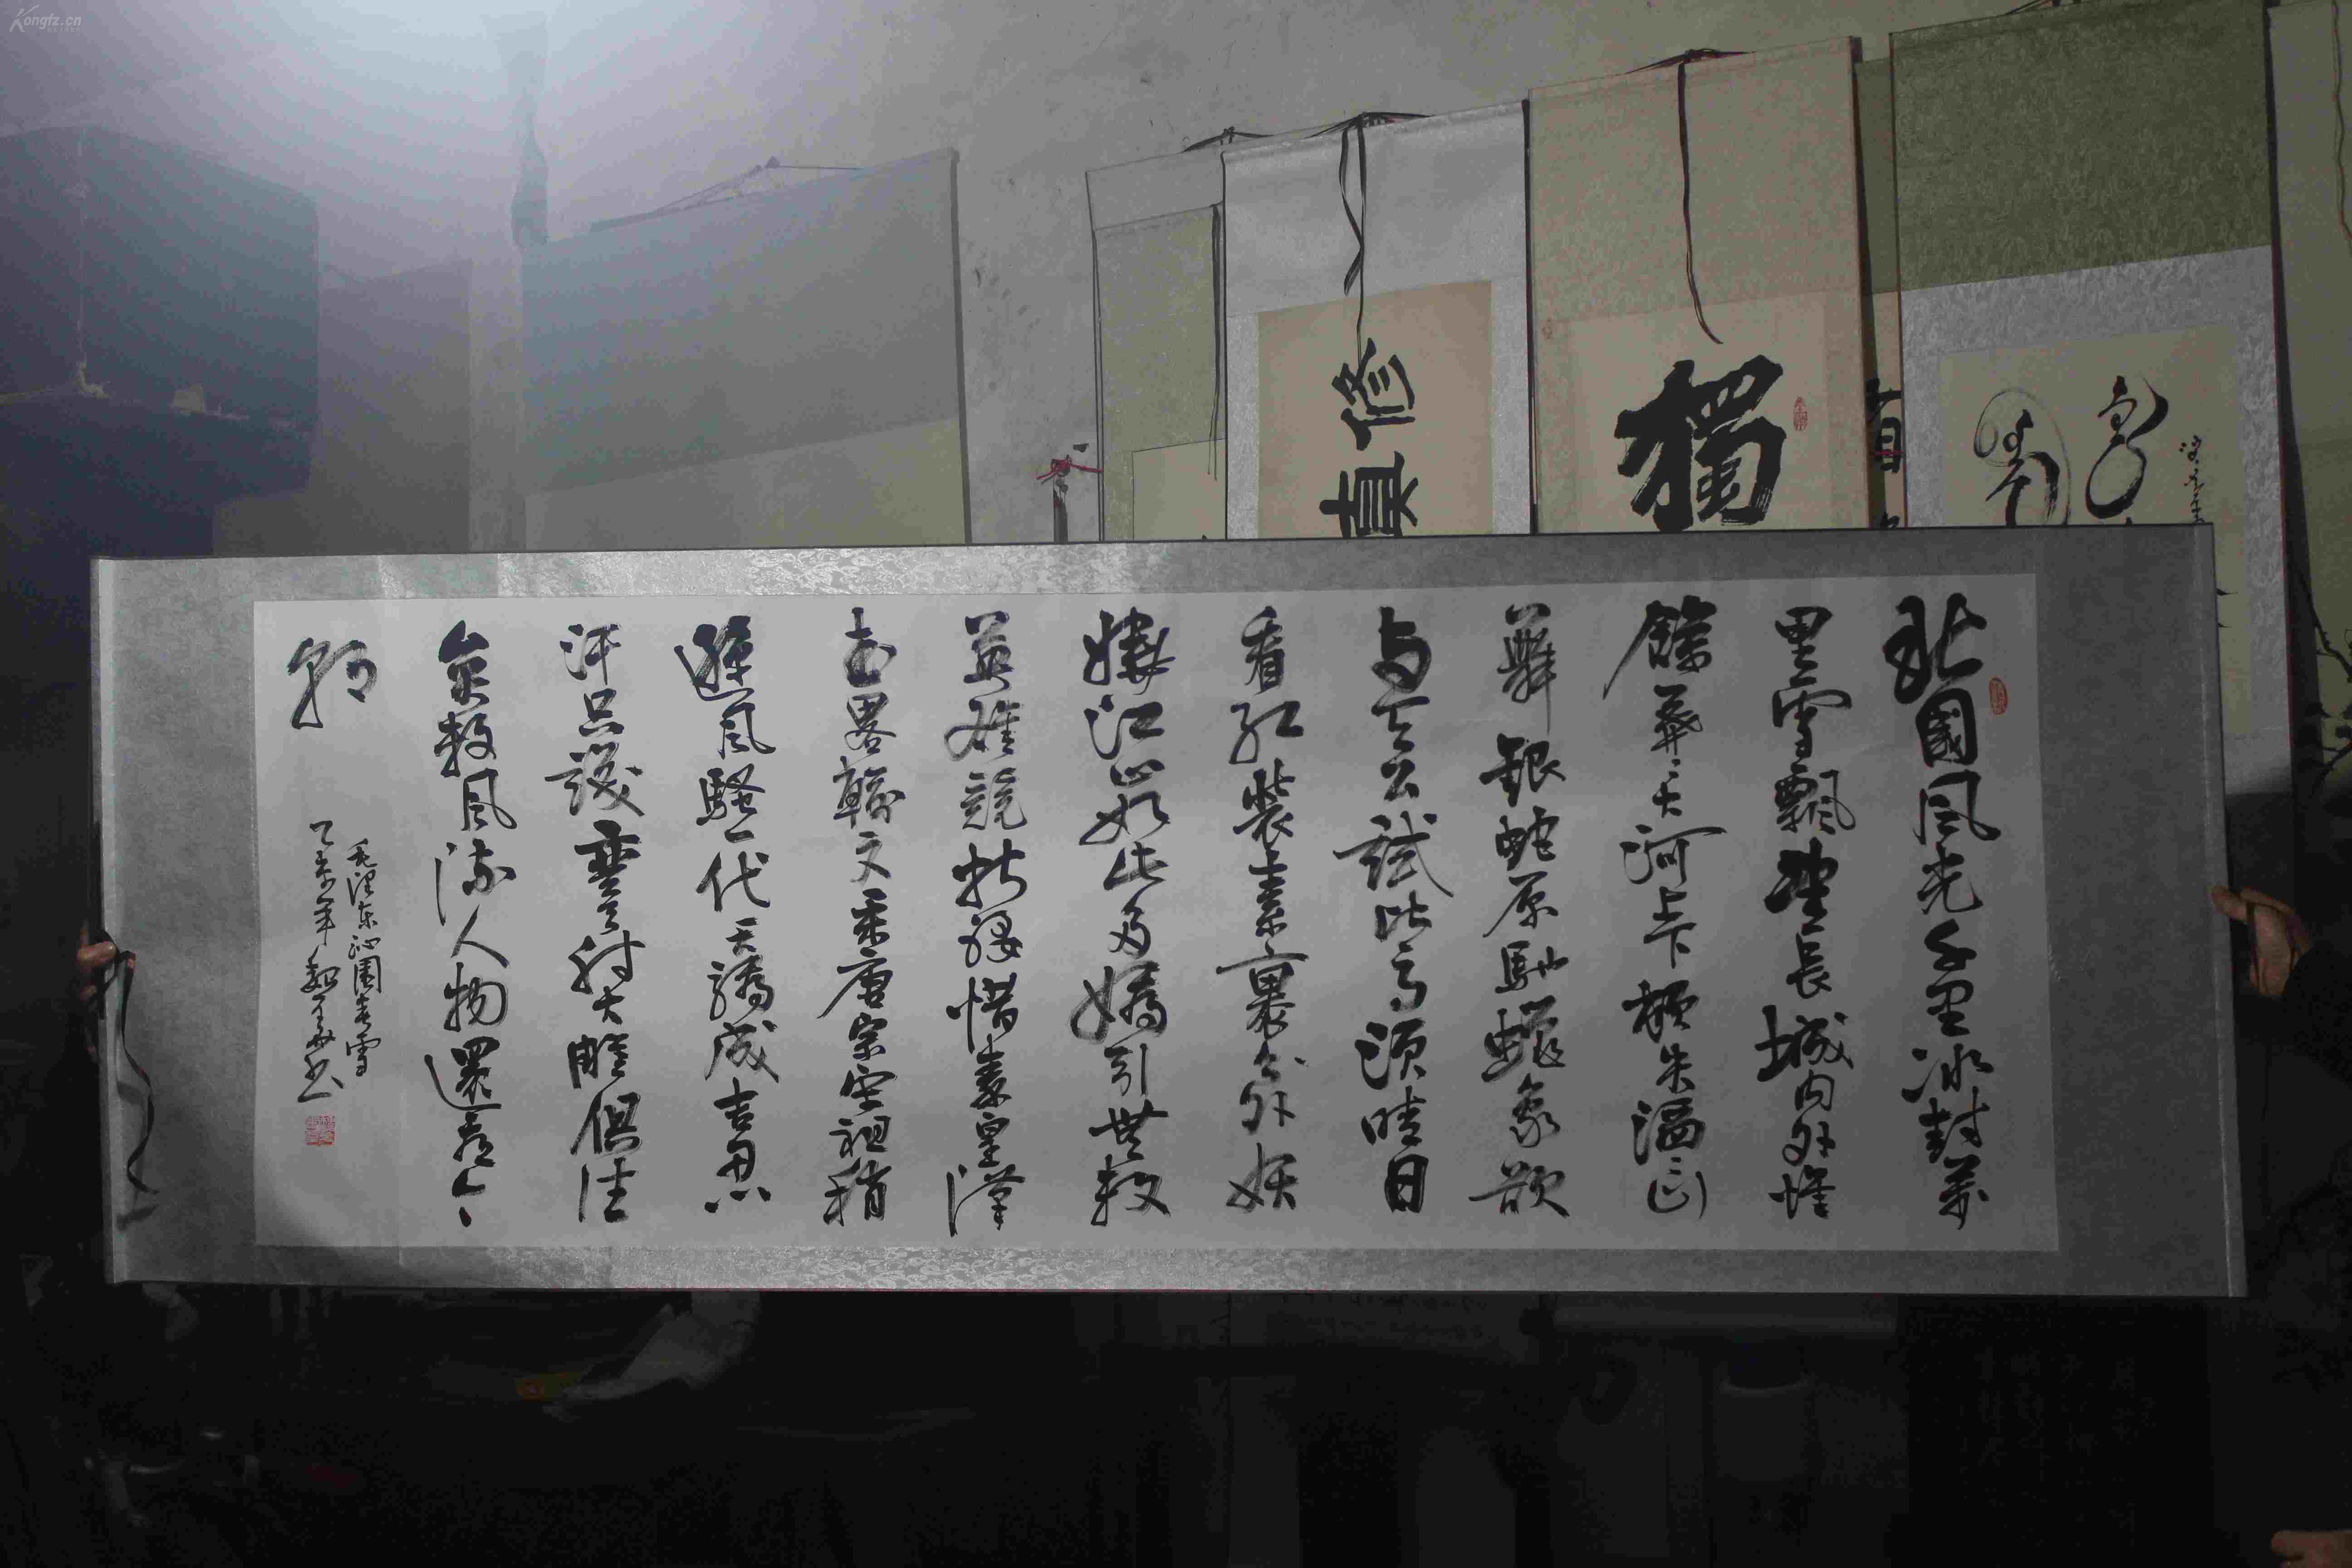 Kongfz.cn
修真
獨
北國風光千里冰封萬
里雪飄望長城内外惟
餘莽、大河上下頓失滔、山
舞銀蛇原馳蠟象欲
与天公試比高須晴日
看紅裝素裹分外妖
嬈江山如此多嬌引無數
英雄競折腰惜秦皇漢
武略輸文采唐宗宋祖稍
遜風騷一代天驕成吉思
汗只識彎弓射大雕俱往
矣數風流人物還看今
朝
毛澤东沁園春雪
乙未年魏书